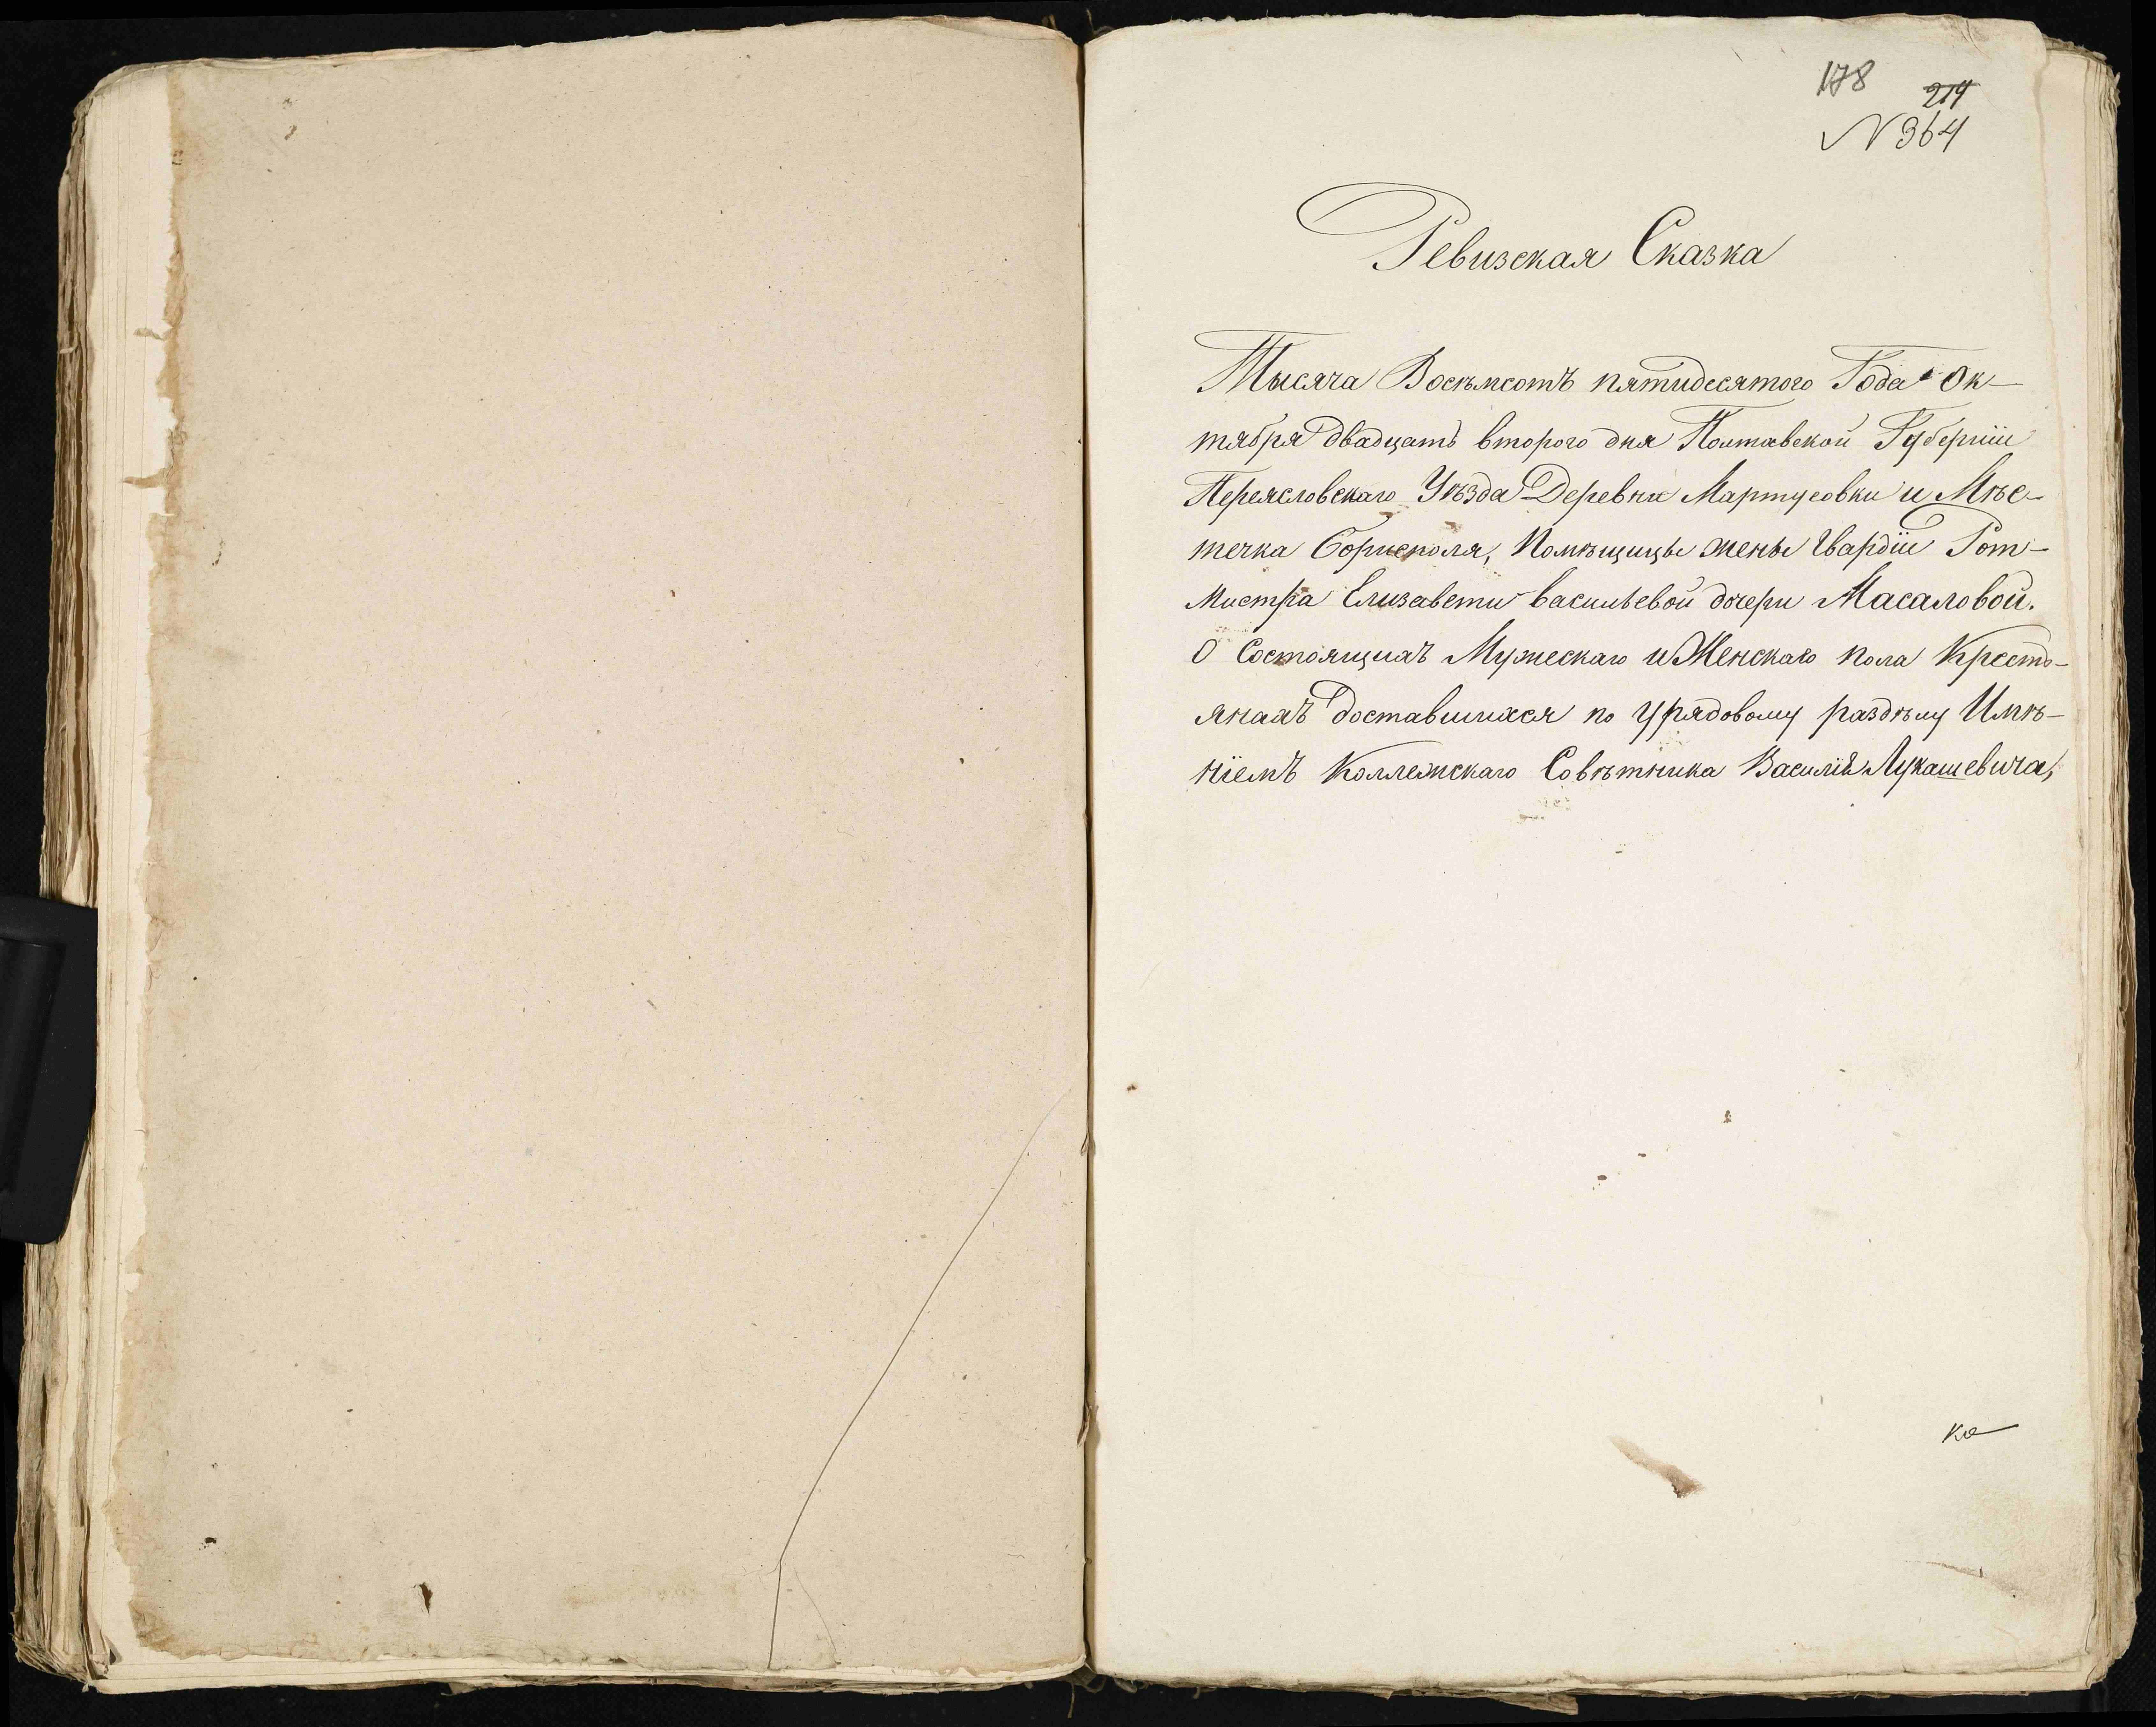 178
214
N 364
Ревизская Сказка
Тысяча Восѣмсотъ пятидесятого Года Ок-
тября двадцать второго дня Полтавской Губерніи
Переясловскаго Уѣзда Деревни Мартусовки и Мѣс-
течка Борисполя, Помѣщицы жены Гвардіи Рот-
мистра Елизавети васильевой дочери Масаловой.
О Состоящихъ Мужескаго и Женскаго пола Кресть-
янахъ доставшихся по Урядовому раздѣлу Имѣ-
ніемъ Коллежскаго Совѣтника Василія Лукашевича,
ко